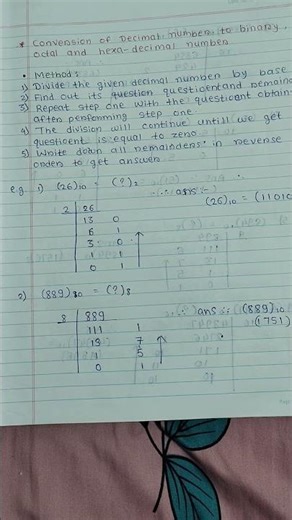 * Convension of Decimal number to binary,
octal and hexa-decimal number
• Method:
1) Divide the given decimal number by base
2) Find out its question questient and remaind
3) Repeat step one with the questient obtain
after penfonming step one
4) The division will continue untill we get
questient is equal to zero
5) Write down all remainders in reverse
orders to get answer
e.g. 1) (26)10 = (?)2
∴ ans :-
(26)10 = (11010
2 | 26
13 0
6 1
3 0
1 1
0 1
2) (889)10 = (?)8
ans :- (889)10
(1751)
8 | 889
111 1
13 7
1 5
0 1